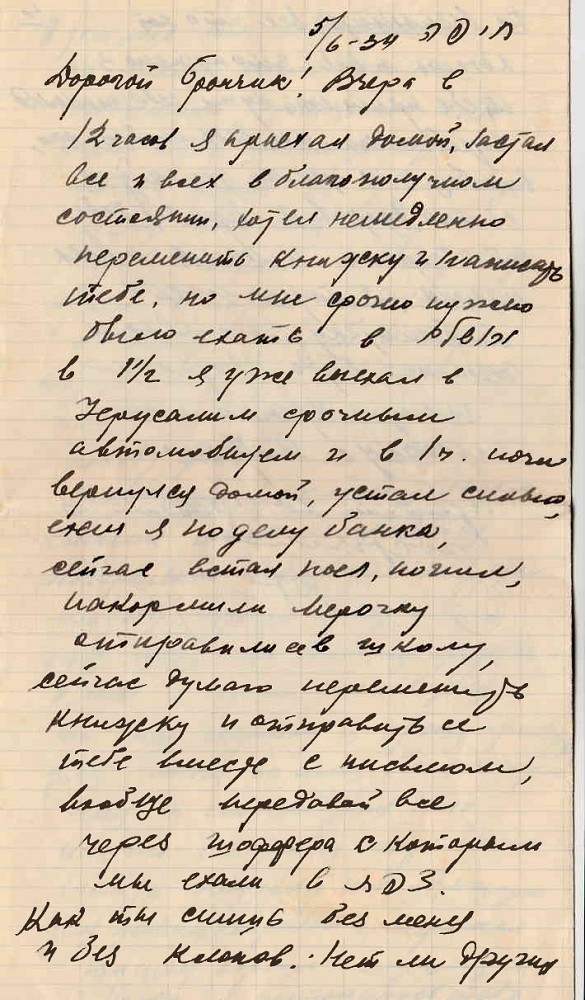 5/6-34 חיפה
Дорогой Брончик! Вчера в
12 часов я приехал домой, застал
все и всех в благополучном
состоянии, хотел немедленно
переменить книжку и написать
тебе, но мне срочно нужно
было ехать в
в 1 1/2 я уже выехал в
Иерусалим срочным
автомобилем и в 1 ч. ночи
вернулся домой, устал сильно,
ехал я по делу банка,
сейчас встал поел, попил,
накормили Мерочку
отправились в школу,
сейчас думаю переменить
книжку и отправить ее
тебе вместе с письмом,
вообще передавай все
через шоффера с которым
мы ехали в
Как ты спишь без меня
и без клопов. Нет ли других